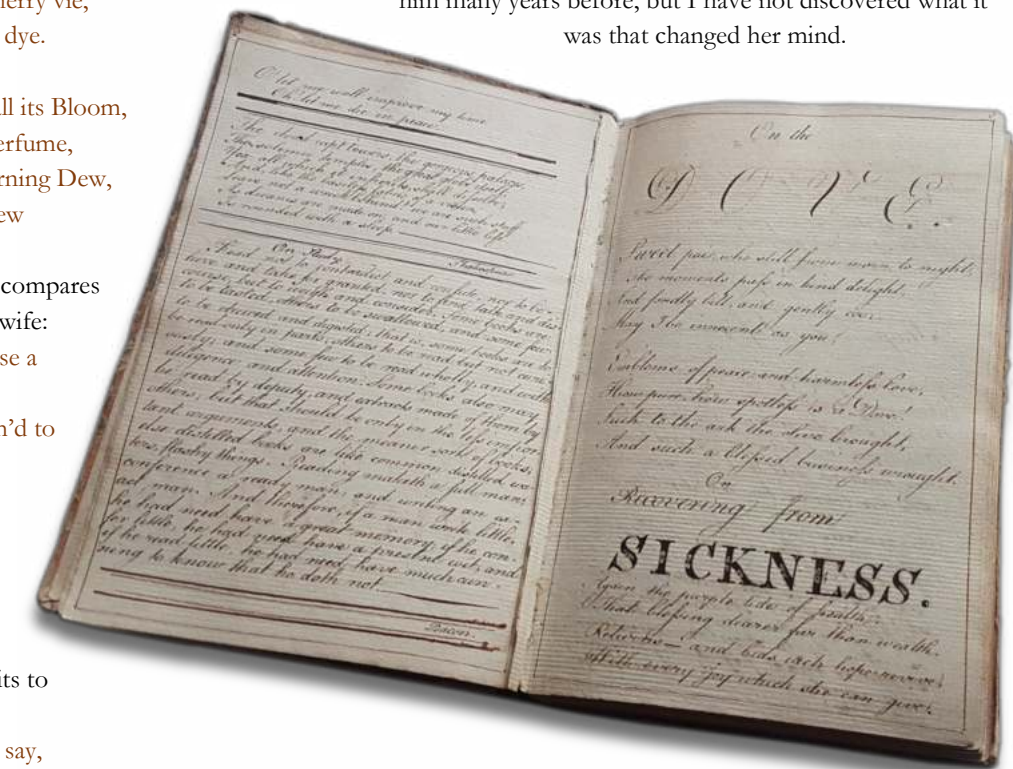 erry vie,
dye.
ll its Bloom,
erfume,
rning Dew,
ew
compares
wife:
se a
n'd to
its to
say,
him many years before, but I have not discovered what it
was that changed her mind.
O! let me well improve my time
Oh let me die in peace.
The cloud capt towers, the gorgeous palaces,
The solemn temples, the great globe itself,
Yea, all which it inherits shall dissolve,
And, like the baseless fabric of a vision,
Leave not a wreck behind! we are such stuff
As dreams are made on, and our little life
Is rounded with a sleep.
Shakespeare
On Study
Read not to contradict and confute, nor to be-
lieve and take for granted, nor to find talk and dis-
course, but to weigh and consider. Some books are
to be tasted, others to be swallowed, and some few
to be chewed and digested; that is, some books are to
be read only in parts, others to be read but not curi-
ously, and some few to be read wholly, and with
diligence and attention. Some books also may
be read by deputy, and extracts made of them by
others; but that should be only in the less impor-
tant arguments, and the meaner sorts of books,
else distilled books are like common distilled wa-
ters, flashy things. Reading maketh a full man,
conference a ready man, and writing an ex-
act man. And therefore, if a man write little,
he had need have a great memory; if he con-
fer little, he had need have a present wit; and
if he read little, he had need have much cun-
ning to know that he doth not.
Bacon.
On the
DOVE.
Sweet pair, who still from morn to night,
The moments pass in kind delight,
And fondly bill, and gently coo:
May I be innocent as you!
Emblems of peace and harmless love,
How pure, how spotless is a Dove!
Such to the ark the olive brought,
And such a blessed business wrought.
On
Recovering from
SICKNESS.
Again the purple tide of health,
That blessing dearer far than wealth,
Returns — and bids each hope revive,
With every joy which she can give;